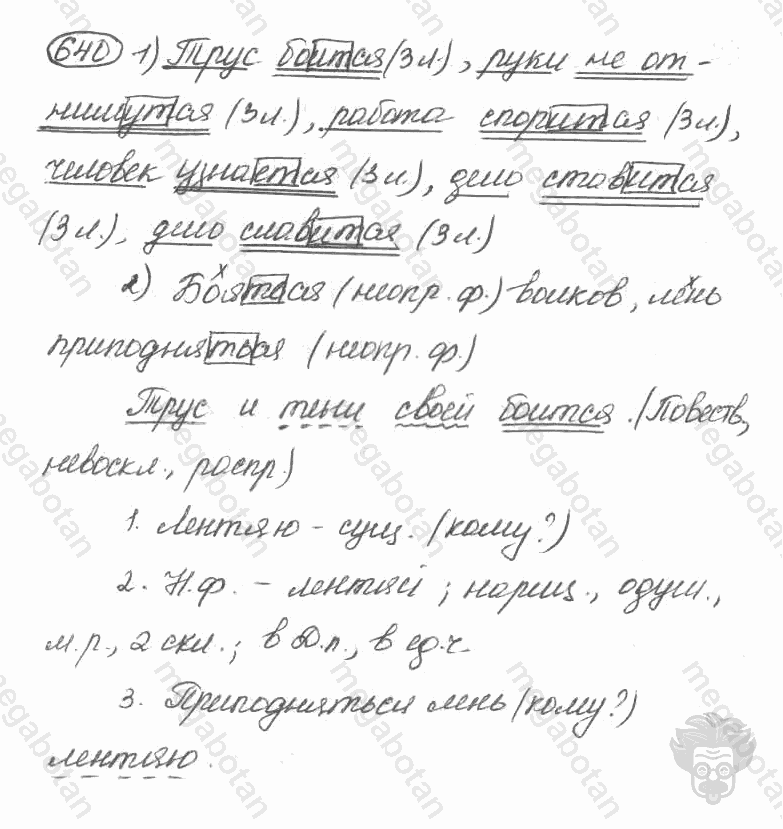 640 1) Трус боится (3 л.), руки не от-
нимутся (3 л.), работа спорится (3 л.),
человек узнается (3 л.), дело ставится
(3 л.), дело славится (3 л.)
2) Бояться (неопр. ф.) волков, лень
приподняться (неопр. ф.)
Трус и тени своей боится. (Повеств,
невоскл., распр.)
1. Лентяю - сущ. (кому?)
2. Н.ф. - лентяй; нариц., одуш.,
м.р., 2 скл.; в Д.п., в ед.ч.
3. Приподняться лень (кому?)
лентяю.
megabotan